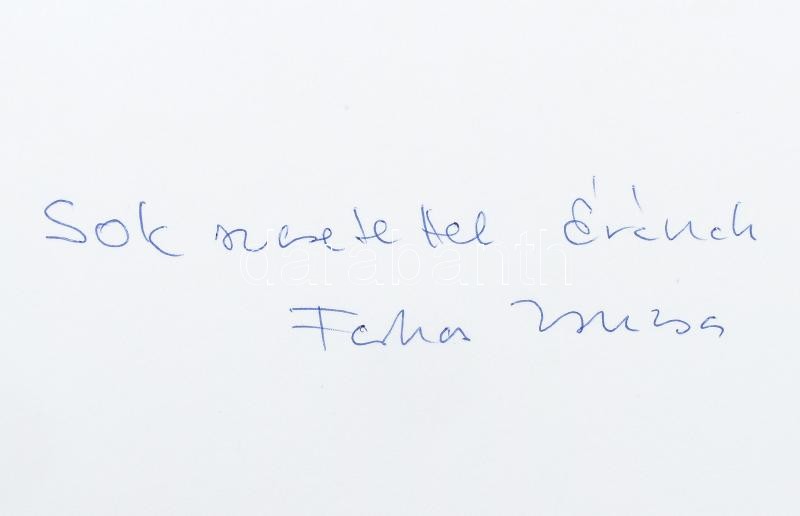 Sok szeretettel Évának
darabanth
Farkas Zsuzsa